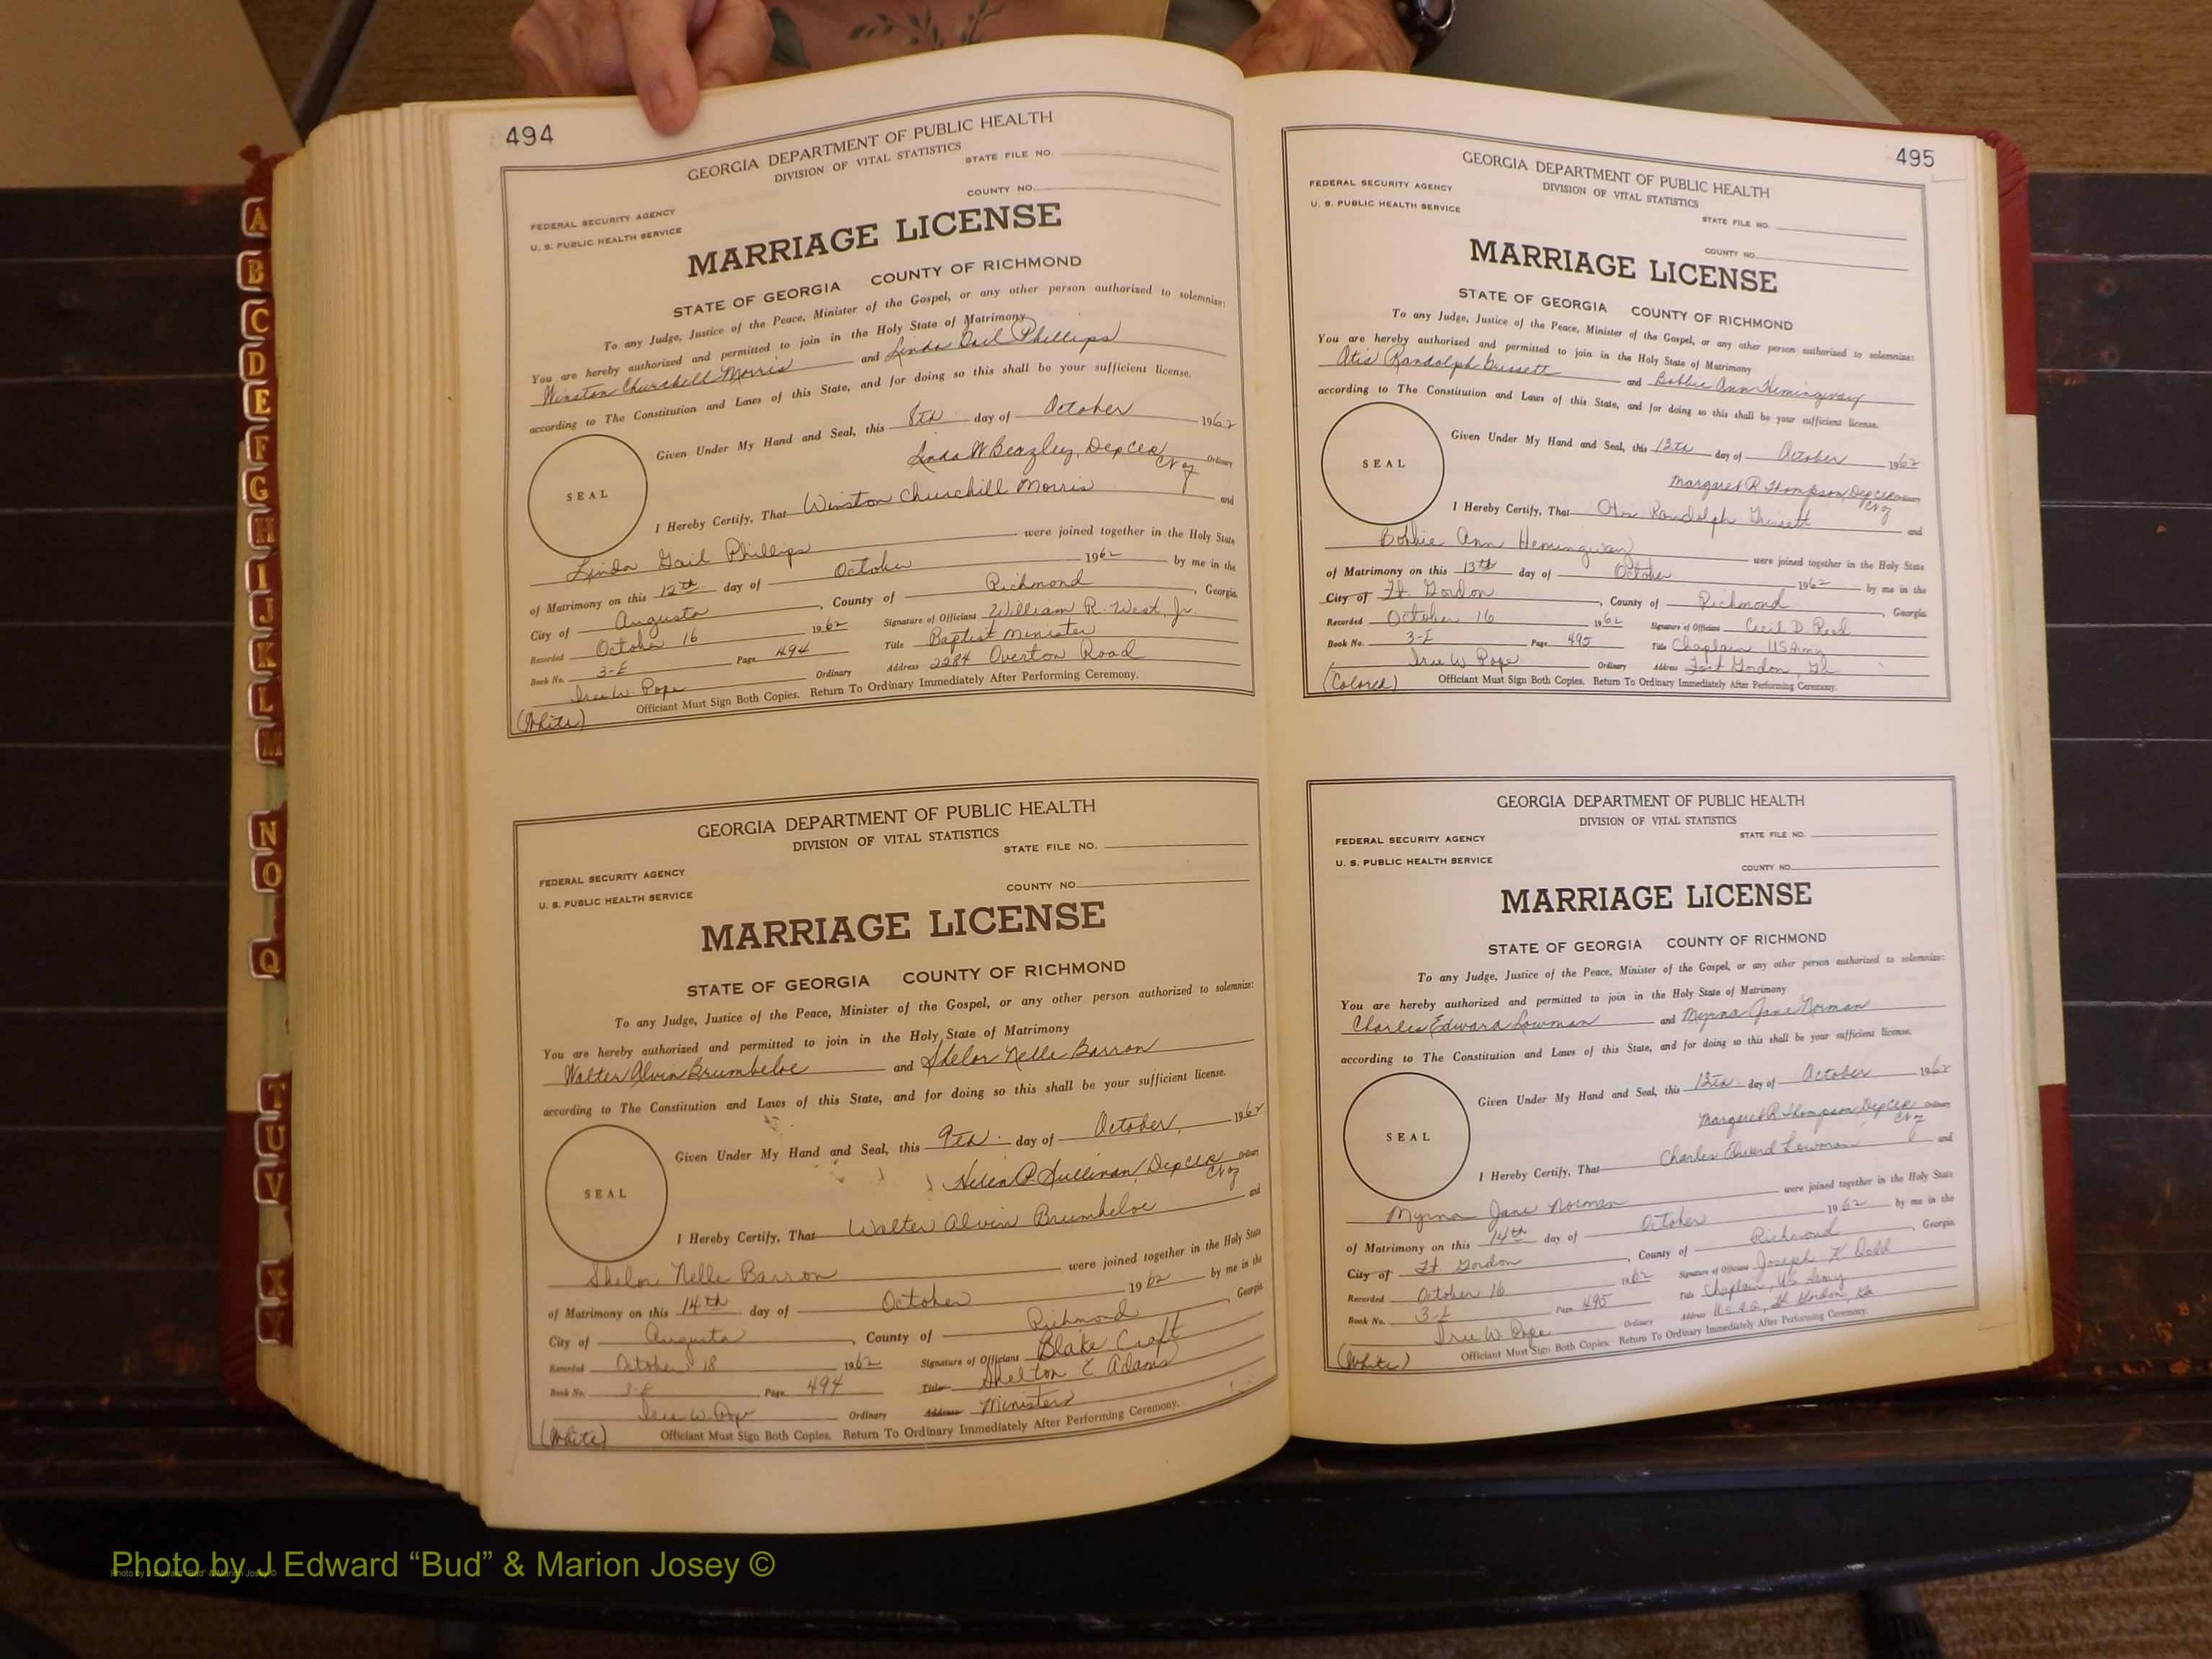 494
GEORGIA DEPARTMENT OF PUBLIC HEALTH
DIVISION OF VITAL STATISTICS
STATE FILE NO.
COUNTY NO.
FEDERAL SECURITY AGENCY
U. S. PUBLIC HEALTH SERVICE
MARRIAGE LICENSE
STATE OF GEORGIA COUNTY OF RICHMOND
To any Judge, Justice of the Peace, Minister of the Gospel, or any other person authorized to solemnize:
You are hereby authorized and permitted to join in the Holy State of Matrimony
Winston Churchill Morris and Linda Gail Phillips
according to The Constitution and Laws of this State, and for doing so this shall be your sufficient license.
Given Under My Hand and Seal, this 8th day of October 1962
Linda W Beazley, Dep Clk Ordinary
SEAL
I Hereby Certify, That Winston Churchill Morris and
Linda Gail Phillips were joined together in the Holy State
of Matrimony on this 12th day of October 1962 by me in the
City of Augusta, County of Richmond, Georgia.
Recorded October 16 1962 Signature of Officiant William R. West, Jr.
Book No. 3-E Page 494 Title Baptist Minister
Iree W. Pope Ordinary Address 2284 Overton Road
(White) Officiant Must Sign Both Copies. Return To Ordinary Immediately After Performing Ceremony.
GEORGIA DEPARTMENT OF PUBLIC HEALTH
DIVISION OF VITAL STATISTICS
STATE FILE NO.
FEDERAL SECURITY AGENCY
COUNTY NO.
U. S. PUBLIC HEALTH SERVICE
MARRIAGE LICENSE
STATE OF GEORGIA COUNTY OF RICHMOND
To any Judge, Justice of the Peace, Minister of the Gospel, or any other person authorized to solemnize:
You are hereby authorized and permitted to join in the Holy State of Matrimony
Walter Alvin Brumbeloe and Shelor Nelle Barron
according to The Constitution and Laws of this State, and for doing so this shall be your sufficient license.
Given Under My Hand and Seal, this 9th day of October, 1962
Helen P. Sullivan, Dep Clk Ordinary
SEAL
I Hereby Certify, That Walter Alvin Brumbeloe and
Shelor Nelle Barron were joined together in the Holy State
of Matrimony on this 14th day of October 1962 by me in the
City of Augusta, County of Richmond, Georgia
Recorded October 18 1962 Signature of Officiant Blake Craft
Book No. 3-E Page 494 Title Shelton E Adams
Iree W. Pope Ordinary Address Ministers
(White) Officiant Must Sign Both Copies. Return To Ordinary Immediately After Performing Ceremony.
495
GEORGIA DEPARTMENT OF PUBLIC HEALTH
DIVISION OF VITAL STATISTICS
FEDERAL SECURITY AGENCY
U. S. PUBLIC HEALTH SERVICE
STATE FILE NO.
COUNTY NO.
MARRIAGE LICENSE
STATE OF GEORGIA COUNTY OF RICHMOND
To any Judge, Justice of the Peace, Minister of the Gospel, or any other person authorized to solemnize:
You are hereby authorized and permitted to join in the Holy State of Matrimony
Otis Randolph and Bobbie Ann Hemingway
according to The Constitution and Laws of this State, and for doing so this shall be your sufficient license.
Given Under My Hand and Seal, this 13th day of October 1962
Margaret R Thompson, Dep Clk Ordinary
SEAL
I Hereby Certify, That Otis Randolph and
Bobbie Ann Hemingway were joined together in the Holy State
of Matrimony on this 13th day of October 1962 by me in the
City of Ft. Gordon, County of Richmond, Georgia
Recorded October 16 1962 Signature of Officiant Cecil D
Book No. 3-E Page 495 Title Chaplain US Army
Iree W Pope Ordinary Address Fort Gordon, Ga
(Colored) Officiant Must Sign Both Copies. Return To Ordinary Immediately After Performing Ceremony.
GEORGIA DEPARTMENT OF PUBLIC HEALTH
DIVISION OF VITAL STATISTICS
FEDERAL SECURITY AGENCY
STATE FILE NO.
U. S. PUBLIC HEALTH SERVICE
COUNTY NO.
MARRIAGE LICENSE
STATE OF GEORGIA COUNTY OF RICHMOND
To any Judge, Justice of the Peace, Minister of the Gospel, or any other person authorized to solemnize:
You are hereby authorized and permitted to join in the Holy State of Matrimony
Charles Edward Lowman and Myrna Jane Norman
according to The Constitution and Laws of this State, and for doing so this shall be your sufficient license.
Given Under My Hand and Seal, this day of October 1962
Margaret R Thompson, Dep Clk Ordinary
SEAL
I Hereby Certify, That Charles Edward Lowman and
Myrna Jane Norman were joined together in the Holy State
of Matrimony on this 14th day of October 1962 by me in the
City of Ft Gordon, County of Richmond, Georgia
Recorded October 16 1962 Signature of Officiant Joseph K
Book No. 3-E Page 495 Title Chaplain, US Army
Iree W. Pope Ordinary Address Ft Gordon, Ga
(White) Officiant Must Sign Both Copies. Return To Ordinary Immediately After Performing Ceremony.
A
B
C
D
E
F
G
H
I
J
K
L
M
N
O
Q
T
U
V
X
Y
Photo by J Edward “Bud” & Marion Josey ©
Photo by J Edward "Bud" & Marion Josey ©